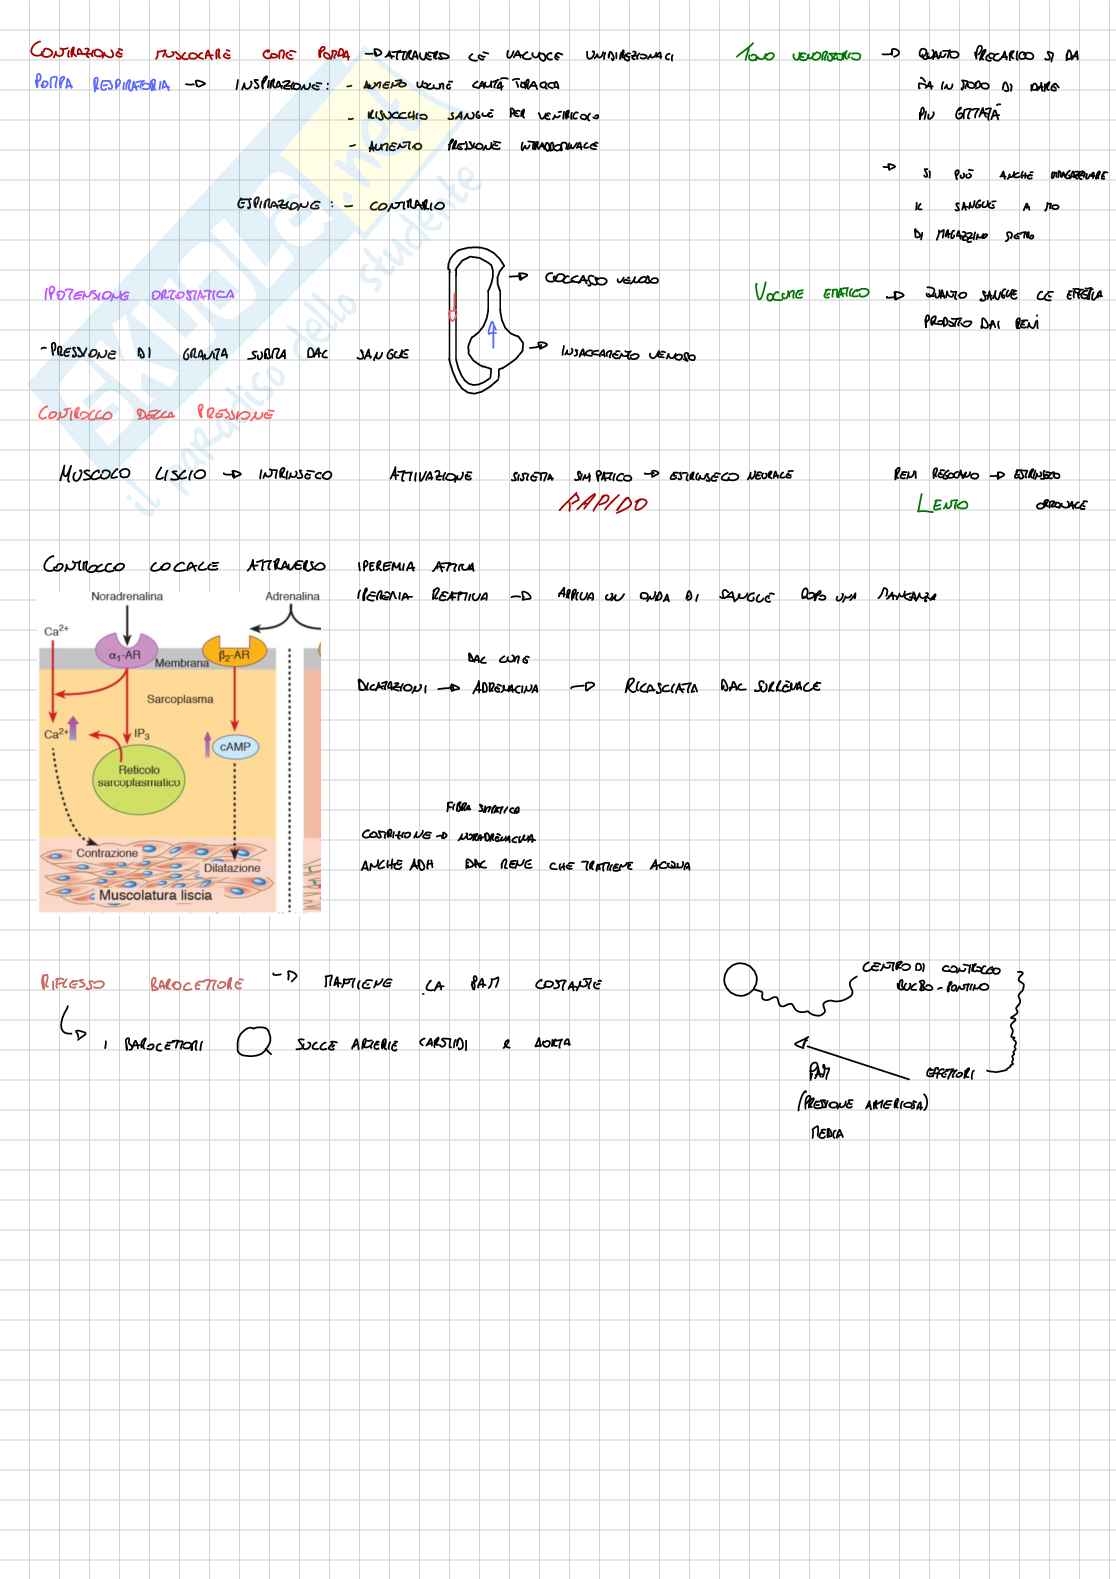 CONTRAZIONE MUSCOLARE COME POMPA → ATTRAVERSO LE VALVOLE UNIDIREZIONALI
POMPA RESPIRATORIA → INSPIRAZIONE: - AUMENTO VOLUME CAVITÀ TORACICA
- RISUCCHIO SANGUE PER VENTRICOLO
- AUMENTO PRESSIONE INTRADDOMINALE
ESPIRAZIONE: - CONTRARIO
TONO VENOMOTORIO → QUANTO PRECARICO SI DA
FA IN MODO DI DARE
PIU GITTATA
→ SI PUÒ ANCHE IMMAGAZZINARE
IL SANGUE A MO
DI MAGAZZINO DIETRO
IPOTENSIONE ORTOSTATICA
- PRESSIONE DI GRAVITA SUBITA DAL SANGUE
→ COLLASSO VENOSO
→ INSACCAMENTO VENOSO
VOLUME EMATICO → QUANTO SANGUE CE EFFETTIVA
PRODOTTO DAI RENI
CONTROLLO DELLA PRESSIONE
MUSCOLO LISCIO → INTRINSECO
ATTIVAZIONE SISTEMA SIMPATICO → ESTRINSECO NEURALE
RAPIDO
RENI REGOLANO → ESTRINSECO
LENTO ORMONALE
CONTROLLO LOCALE ATTRAVERSO IPEREMIA ATTIVA
IPEREMIA REATTIVA → ARRIVA UN ONDA DI SANGUE DOPO UNA MANCANZA
Noradrenalina
Adrenalina
Ca2+
α1-AR
β2-AR
Membrana
Sarcoplasma
Ca2+
IP3
cAMP
Reticolo
sarcoplasmatico
Contrazione
Dilatazione
Muscolatura liscia
DAL CUORE
DILATAZIONI → ADRENALINA → RILASCIATA DAL SURRENALE
FIBRA SIMPATICO
COSTRIZIONE → NORADRENALINA
ANCHE ADH DAL RENE CHE TRATTIENE ACQUA
RIFLESSO BAROCETTORE → MANTIENE LA PAM COSTANTE
I BAROCETTORI SULLE ARTERIE CAROTIDI E AORTA
CENTRO DI CONTROLLO
BULBO-PONTINO
EFFETTORI
PAM
(PRESSIONE ARTERIOSA)
MEDIA
SKUOLA.net
il paradiso dello studente